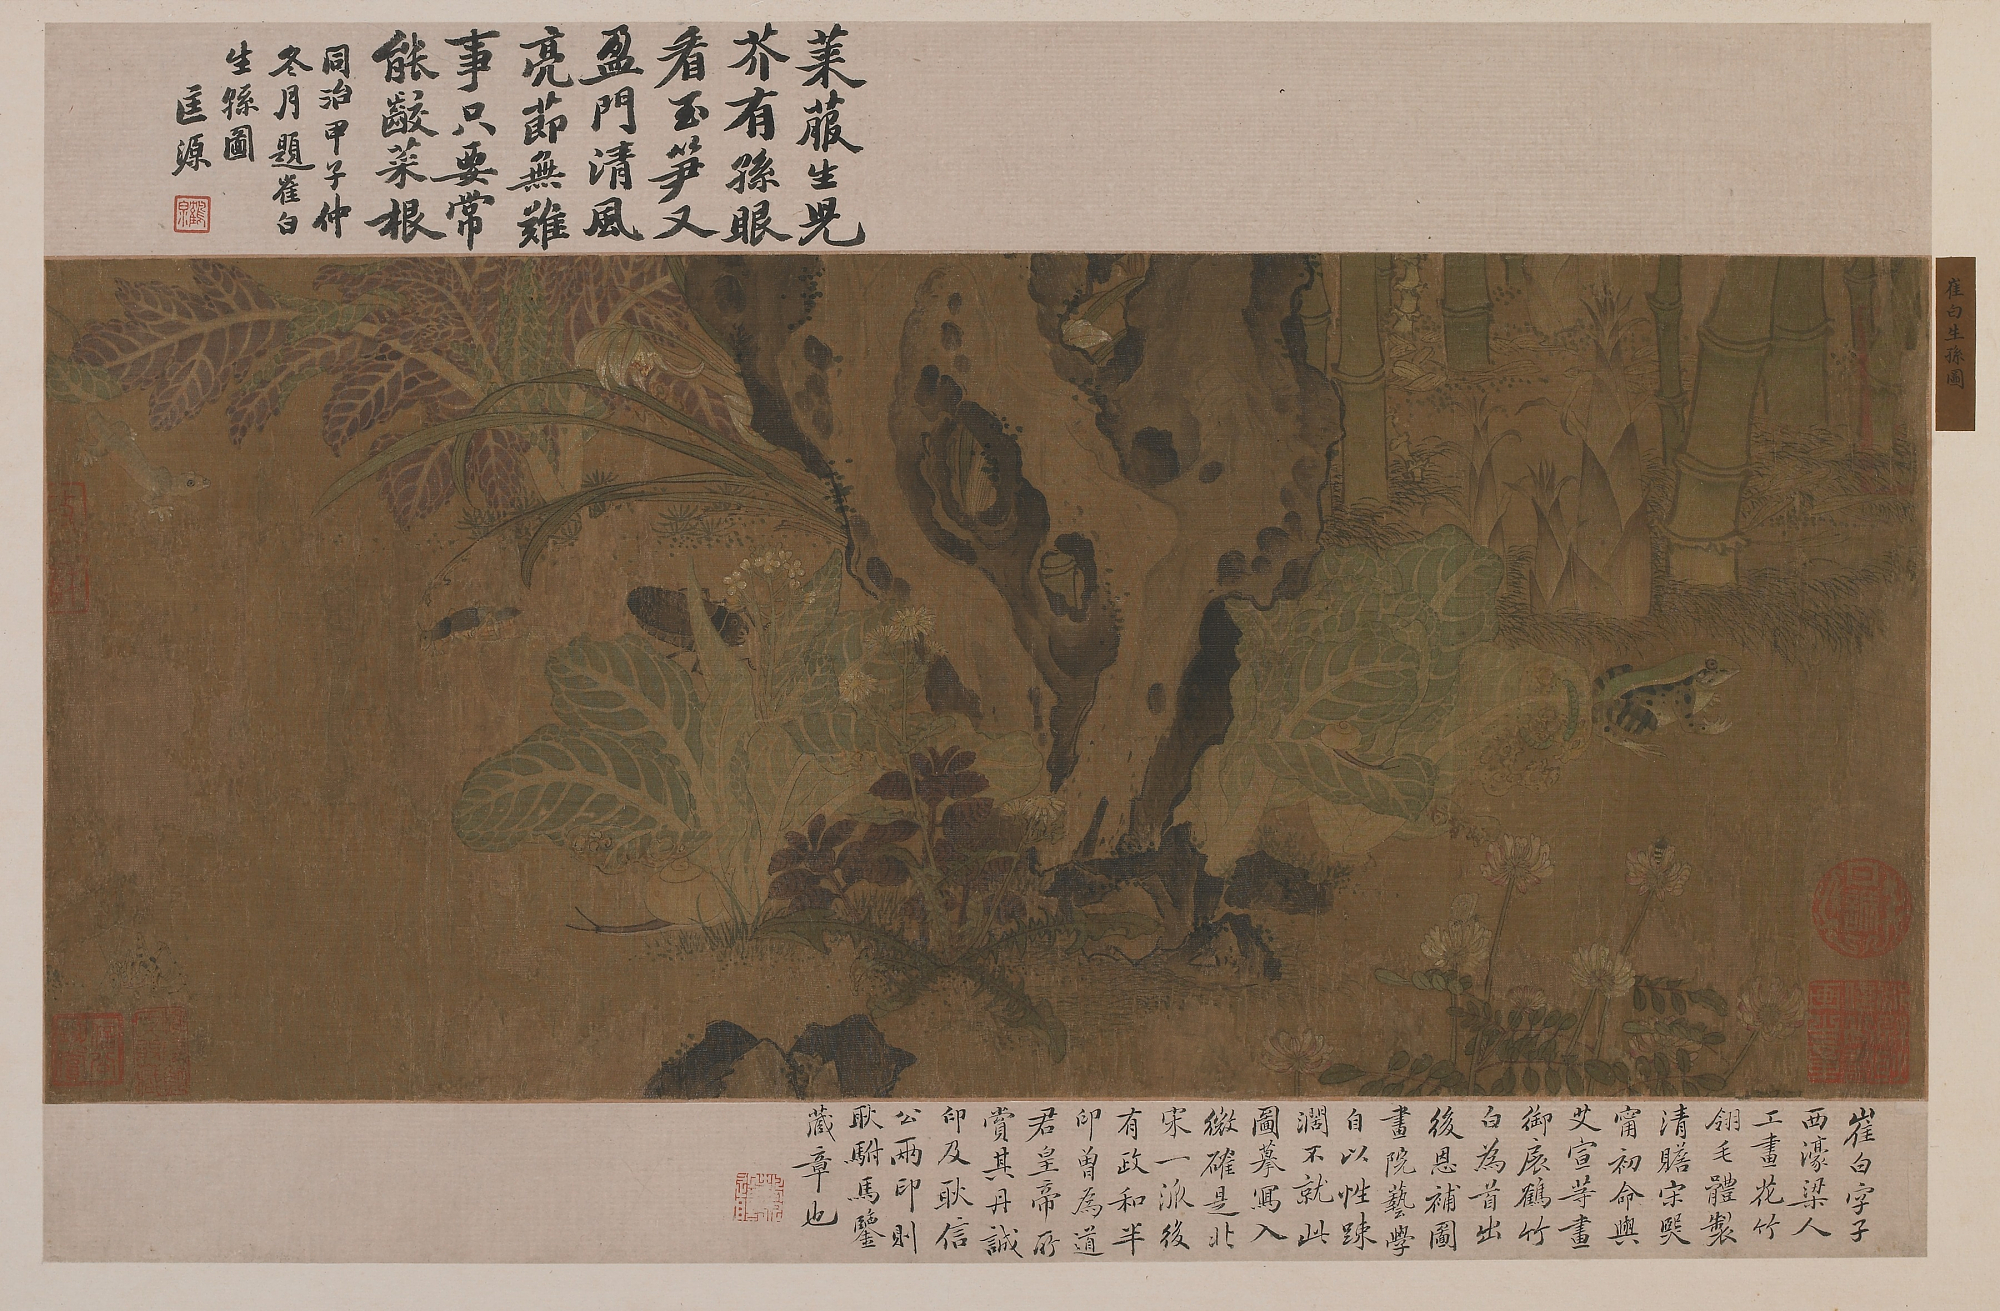 萊菔生兒
芥有孫眼
看玉笋又
盈門清風
亮節無難
事只要常
能齩菜根
同治甲子仲
冬月題崔白
生孫圖
匡源
崔白生孫圖
崔白字子
西濠梁人
工畫花竹
翎毛體製
清贍宋熙
甯初命與
艾宣等畫
御扆鶴竹
白為首出
後恩補圖
畫院藝學
自以性踈
濶不就此
圖摹寫入
微確是北
宋一派後
有政和半
印曽為道
君皇帝所
賞其丹誠
印及耿信
公兩印則
耿駙馬鑒
藏章也